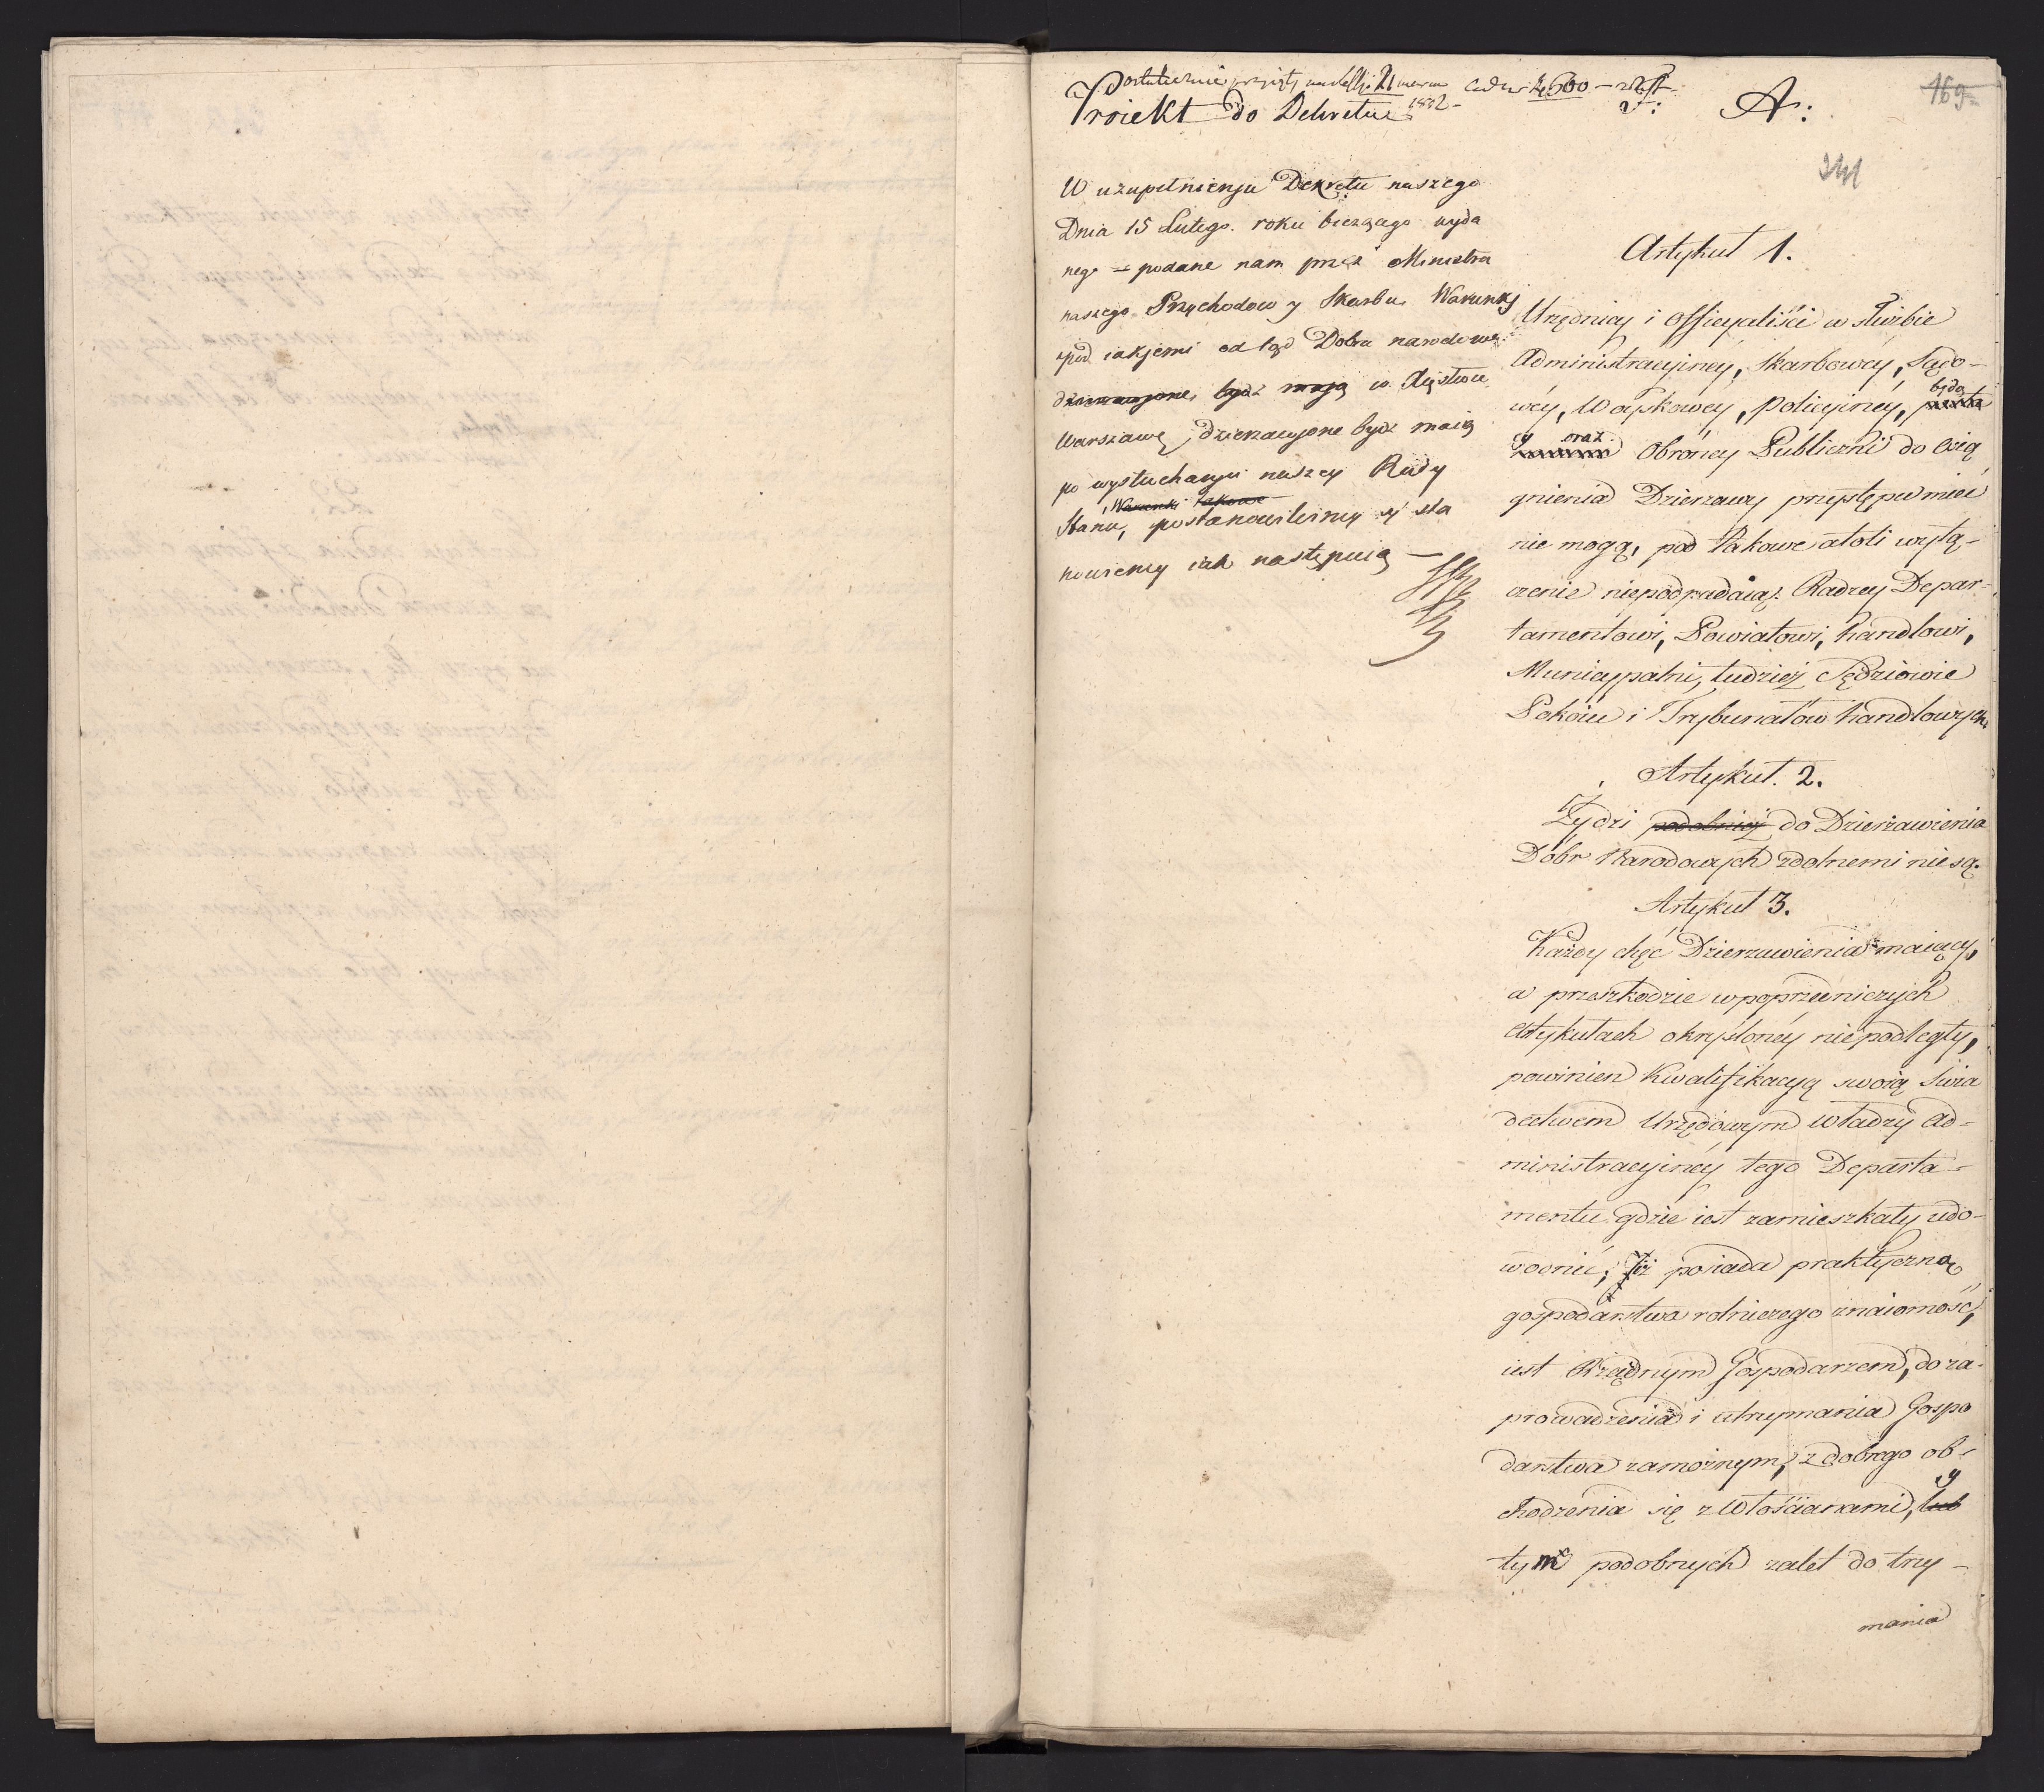 Ostatecznie przyięty na Sessyi 21 marca 1812 – ad Nr 4600 –
Proiekt do Dekretu
A:
169
W uzupełnieniu Dekretu naszego
Dnia 15 Lutego roku bieżącego wyda
nego – podane nam przez Ministra
naszego Przychodow y Skarbu Warunki
pod iakiemi odtąd Dobra narodowe
dzierzawione bydź mają w Xięstwie
Warszawę, dzierzawione bydź maią
po wysłuchaniu naszey Rady
Warunki takowe
Stanu, postanowiliśmy y sta
nowiemy iak następuią –
Artykuł 1.
Urzędnicy i Officyaliści w służbie
Administracyiney, Skarbowey, Sądo-
wey, Woyskowey, Policyiney, będą
cy oraz Obrońcy Publiczni do osią
gnienia Dzierzawy przystępu mieć
nie mogą, pod takowe atoli wyłą-
czenie niepodpadaią: Radzcy Depar-
tamentowi, Powiatowi, handlowi,
Municypalni, tudzież Sędziowie
Pokoiu i Trybunałów handlowych.
Artykuł. 2.
Żydzi podobnież do Dzierżawienia
Dobr Narodowych zdolnemi nie są.
Artykuł 3.
Każdy chęć Dzierzawienia maiący,
a przeszkodzie w poprzedniczych
Artykułach okryśloney niepodległy,
powinien Kwalifikacyą swoią świa
dectwem Urzędowym Władzy Ad-
ministracyiney tego Departa-
mentu gdzie iest zamieszkały udo-
wodnić, iż posiada praktyczną
gospodarstwa rolniczego znaiomość,
iest Rządnym Gospodarzem, do za-
prowadzenia i utrzymania Gospo
darstwa zamożnym, z dobrego ob-
chodzenia się z Włościanami, lub y
tym podobnych zalet do trzy-
mania